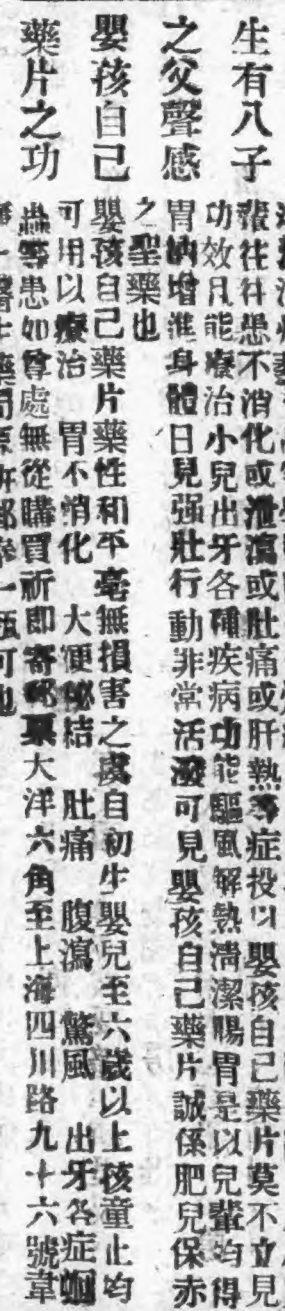 生有八子
之父聲感
嬰孩自己
藥片之功
輩往往患不消化或泄瀉或肚痛或肝熱等症投以嬰孩自己藥片莫不立見
功效凡能療治小兒出牙各種疾病功能驅風解熱清潔腸胃是以兒輩均得
胃納增進身體日見强壯行動非常活潑可見嬰孩自己藥片誠係肥兒保赤
之聖藥也
嬰孩自己藥片藥性和平毫無損害之虞自初生嬰兒至六歲以上孩童止均
可用以療治 胃不消化 大便秘結 肚痛 腹瀉 驚風 出牙各症蛔
蟲等患如尊處無從購買祈即寄郵票大洋六角至上海四川路九十六號韋